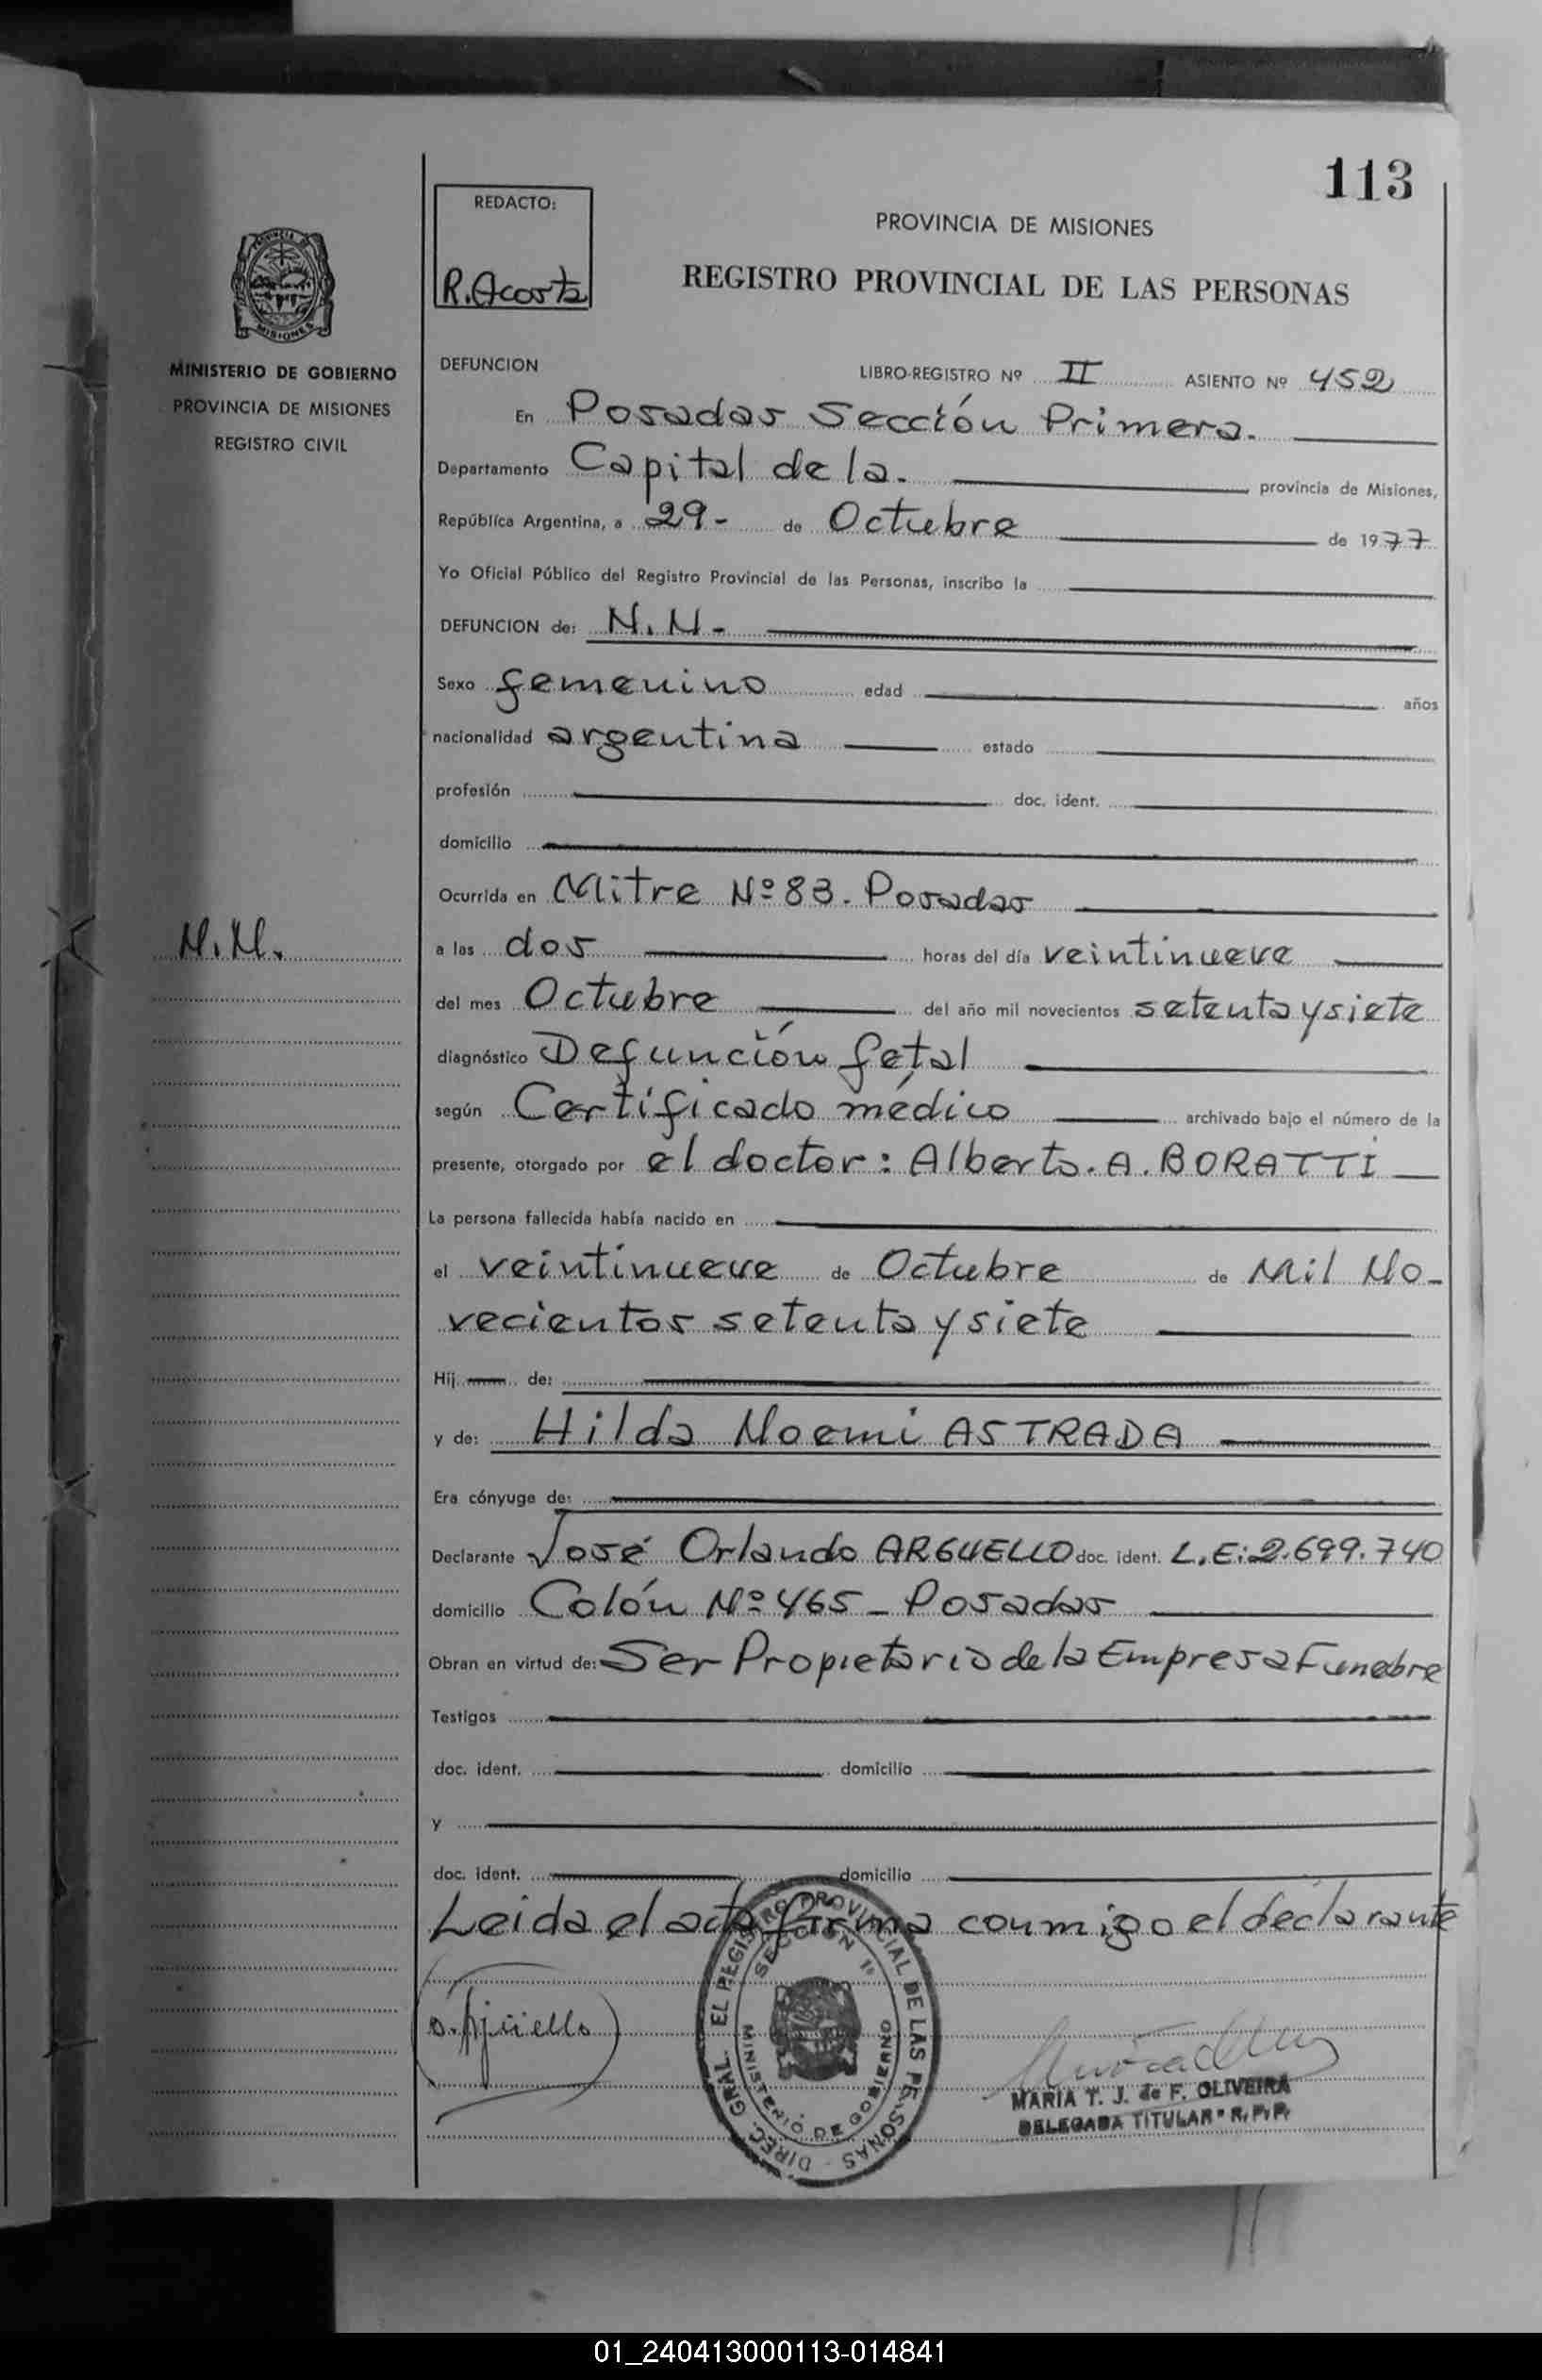 113
REDACTO:
R. Acosta
PROVINCIA DE MISIONES
REGISTRO PROVINCIAL DE LAS PERSONAS
MISIONES
MINISTERIO DE GOBIERNO
PROVINCIA DE MISIONES
REGISTRO CIVIL
DEFUNCION LIBRO-REGISTRO Nº II ASIENTO Nº 452
En Posadas Sección Primera.
Departamento Capital de la. provincia de Misiones,
República Argentina, a 29- de Octubre de 1977
Yo Oficial Público del Registro Provincial de las Personas, inscribo la
DEFUNCION de: N.N-
Sexo femenino edad años
nacionalidad argentina estado
profesión doc. ident.
domicilio
Ocurrida en Mitre Nº 83. Posadas
N.N.
a las dos horas del día veintinueve
del mes Octubre del año mil novecientos setenta y siete
diagnóstico Defunción fetal
según Certificado médico archivado bajo el número de la
presente, otorgado por el doctor: Alberto. A. BORATTI
La persona fallecida había nacido en
el veintinueve de Octubre de Mil No-
vecientos setenta y siete
Hij de:
y de: Hilda Noemi ASTRADA
Era cónyuge de:
Declarante José Orlando ARGUELLO doc. ident. L.E: 2.699.740
domicilio Colón Nº 465 - Posadas
Obran en virtud de: Ser Propietario de la Empresa Funebre
Testigos
doc. ident. domicilio
y
doc. ident. domicilio
Leida el acta firma conmigo el declarante
DIREC. GRAL. EL REGISTRO PROVINCIAL DE LAS PERSONAS
SECCION 1ª
MINISTERIO DE GOBIERNO
O. Argüello
MARIA T. J. de F. OLIVEIRA
DELEGADA TITULAR - R. P. P.
01_240413000113-014841